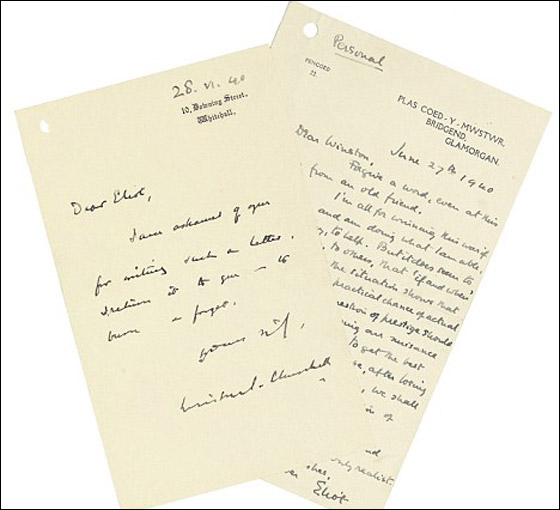 28. VI. 40
10, Downing Street,
Whitehall.
Dear Eliot,
I am ashamed of you
for writing such a letter.
I return it to you — to
burn & forget.
Yours
Winston S. Churchill
Personal
PENCOED
22.
PLAS COED-Y-MWSTWR,
BRIDGEND,
GLAMORGAN.
June 27th 1940
Dear Winston,
Forgive a word, even at this
from an old friend.
I'm all for winning this war if
and am doing what I am able,
to help. But it does seem to
to others, that 'if and when'
the situation shows that
practical chance of actual
question of prestige should
our nuisance
to get the best
after losing
we shall
in of
nd
only realist.
Eliot